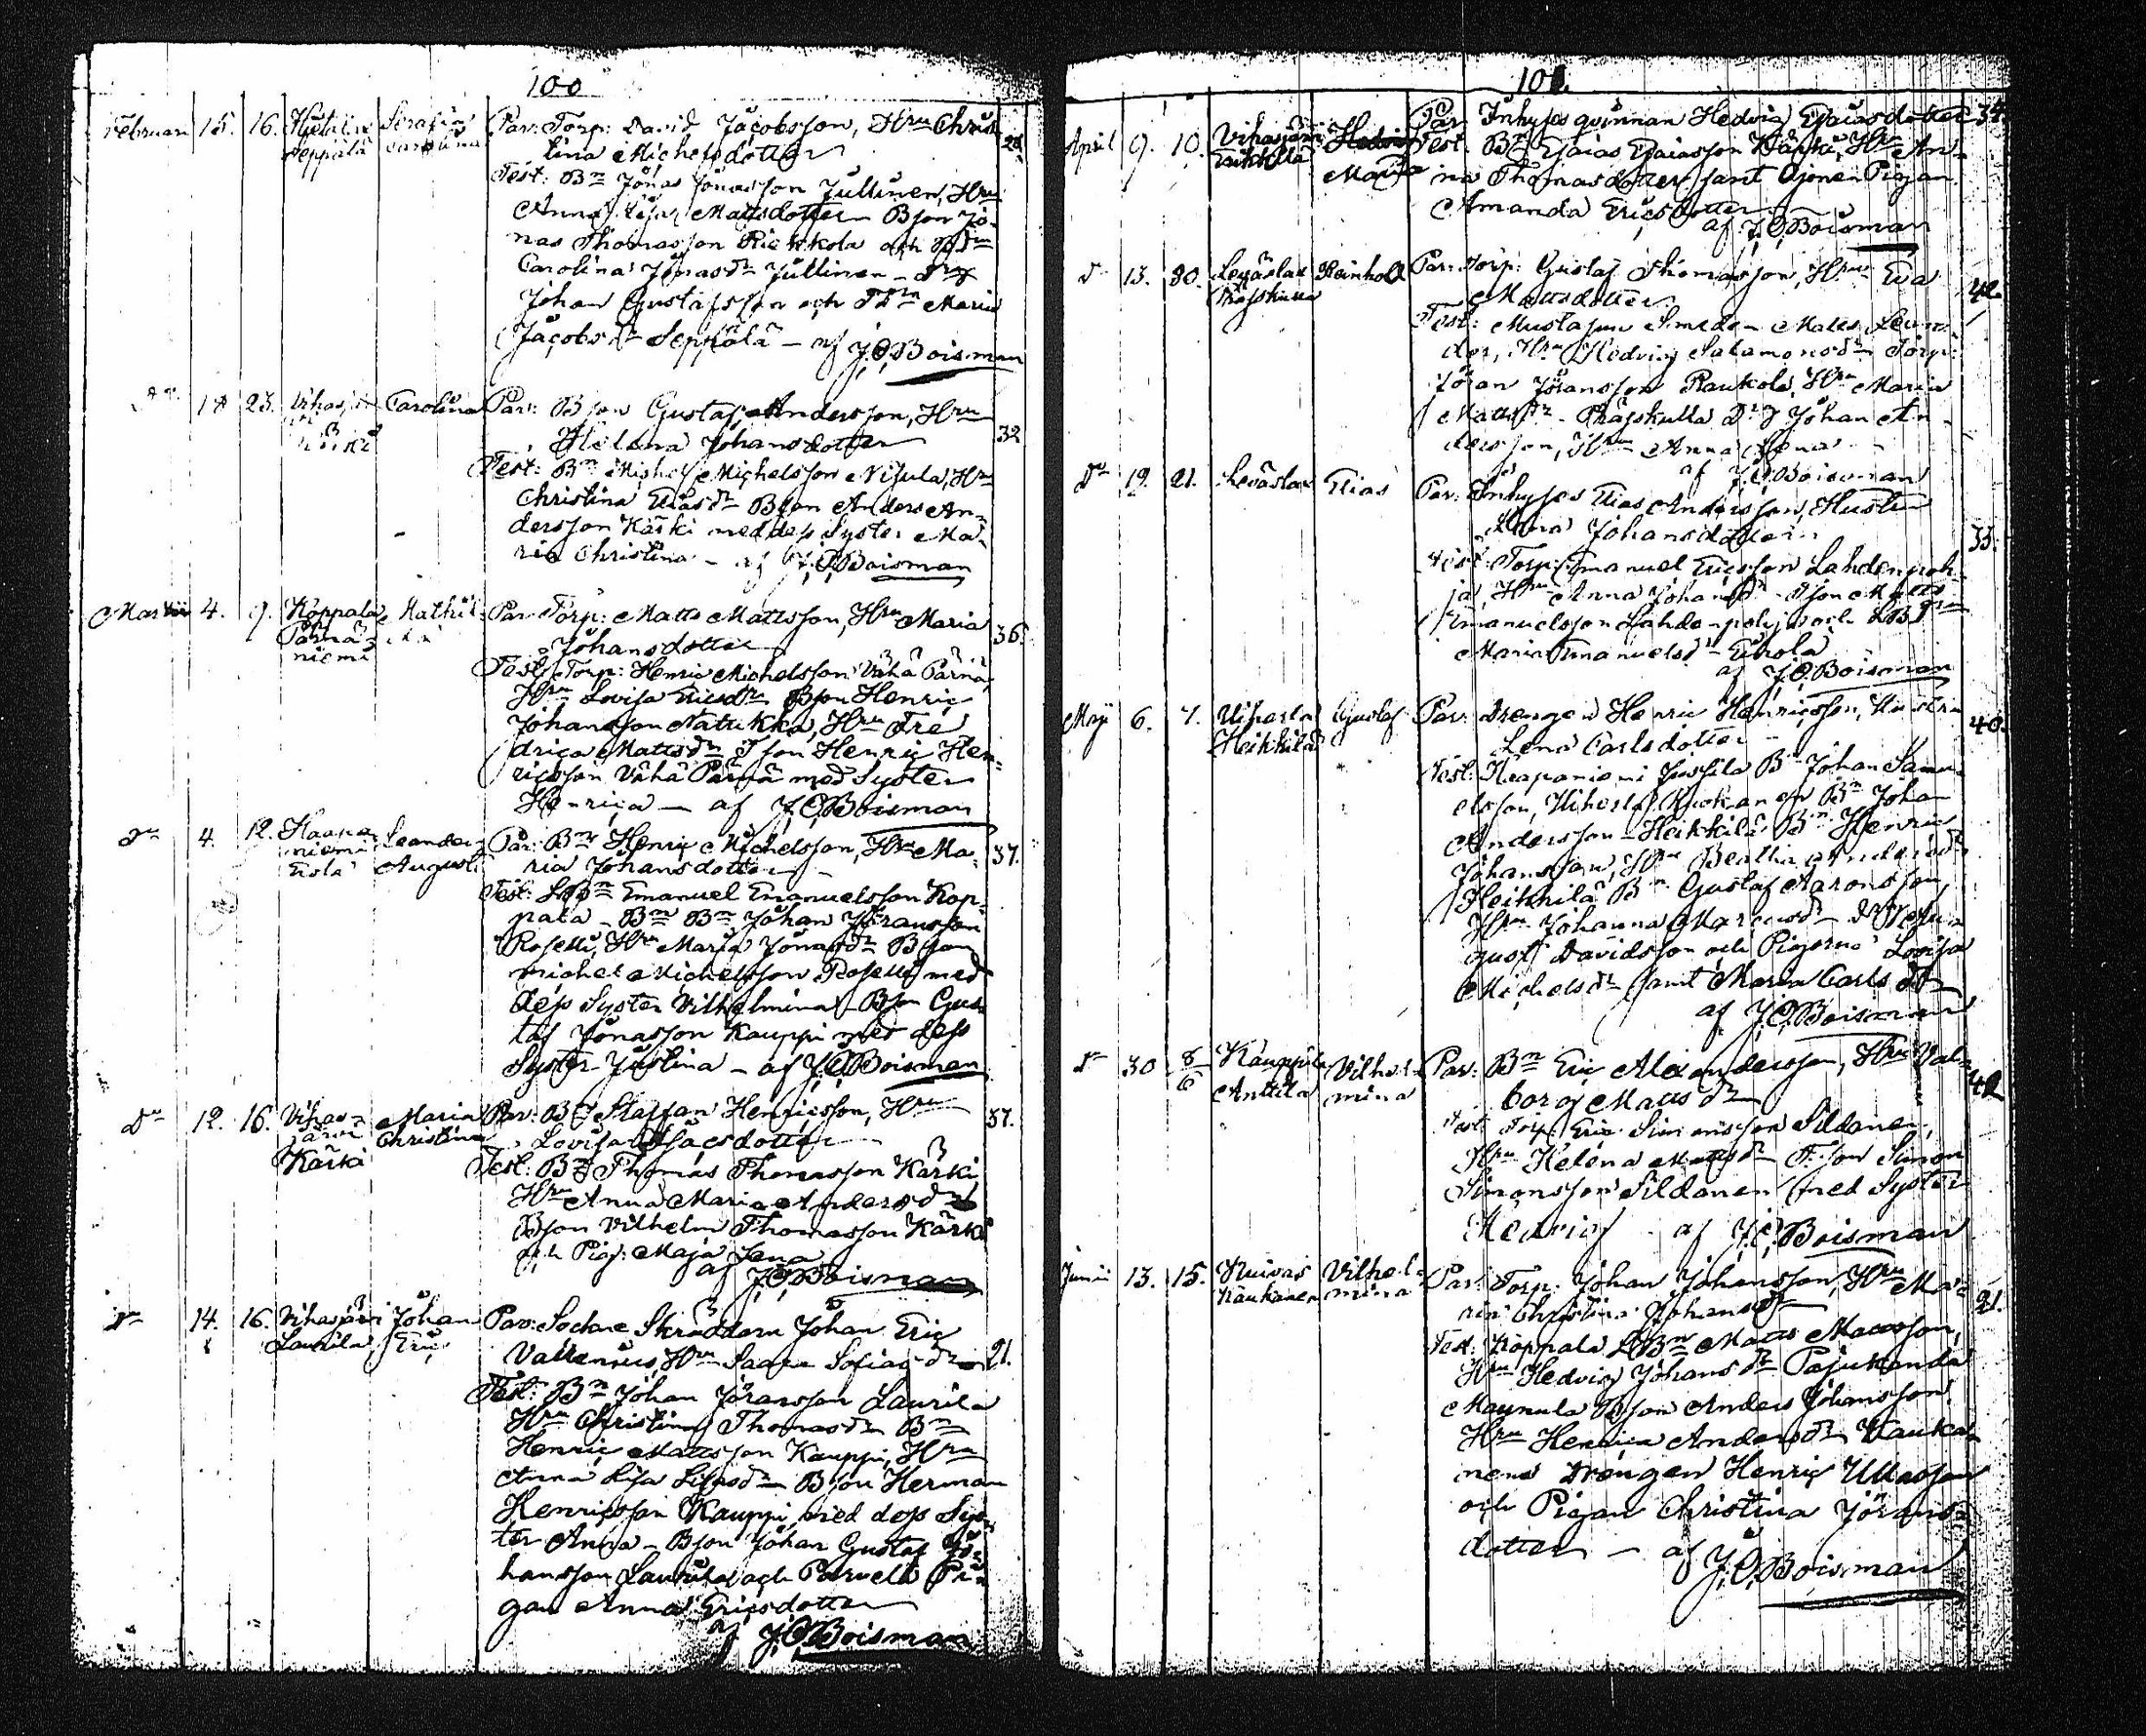 100
Februari 15. 16. Hyetälax Serafia Par: Torp: David Jacobsson, Hru Chris
Seppälä Carolina tina Michelsdotter
Test: Bn Jonas Jonasson Jullinen, Hru
Anna Lisa Mattsdotter Bson Jo-
nas Thomasson Riekkola och Bdn
Carolina Jonasdr Jullinen
Johan Gustafsson och Maria
Jacobsdr Seppälä - af J.O.Boisman
dn 18 23. Carolina Par: Bson Gustaf Andersson, Hru 32
Helena Johansdotter
Test: Bn Michel Michelsson Nisula, Hru
Christina Eliasdr Bson Anders An-
dersson Kärki med dess Syster Ma-
ria Christina - af J.O.Boisman
Martii 4. 9. Koppala Mathil- Par: Torp: Matts Mattsson, Hru Maria 36
Pärnä- da Johansdotter
niemi Test: Torp: Henric Michelsson Vähä Pärnä,
Hru Lovisa Ericsdr Bson Henric
Johansson Natukka, Hru Fre
drica Mattsdr Tson Henric Hen-
ricsson Vähä Pärnä med Syster
Henrica - af J.O.Boisman
dn 4. 12. Haapa Leander Par: Bn Henric Michelsson, Hru Ma- 37.
niemi August ria Johansdotter
Erola Test: LBn Emanuel Emanuelsson Kop-
pala - Bn Johan Jöransson
Rosetti, Hru Maria Jonasdr Bson
Michel Michelsson Rosetti med
dess Syster Vilhelmina - Bson Gus-
taf Jonasson Kauppi med dess
Syster Justina - af J.O.Boisman
dn 12. 16. Vihas- Maria Par: Bn Staffan Henricsson, Hru 37.
järvi Christina Lovisa Isacsdotter
Kärki Test: Bn Thomas Thomasson Kärki
Hru Anna Maria Andersdr
Bson Vilhelm Thomasson Kärki
och Pig: Maja Lena
af J.O.Boisman
dn 14. 16. Vihasjärvi Johan Par: Sockne Skräddarn Johan Eric
Laurila Eric Vallenius, Hru Saara Sofia 21.
Test: Bn Johan Jöransson Laurila
Hru Christina Thomasdr Bn
Henric Mattsson Kauppi, Hru
Anna Lisa Bson Herman
Henricsson Kauppi med dess Sys-
ter Anna - Bson Johan Gustaf Jo-
hansson Laurila och Pi-
gan Anna Ericsdotter
af J.O.Boisman
April 9. 10. Vihasjärvi Hedvig Par: Inhyses qvinnan Hedvig Esaiasdotter 34.
Maria Test: Bn Esaias Esaiasson Kärki, Hru An-
na Thomasdotter samt Pigan
Amanda Ericsdotter
af J.O.Boisman
dn 13. 30. Leväslax Reinhold Par: Torp: Gustaf Thomasson, Hru Eva 42.
Mattsdotter
Test: Mustajum Smeden Matts Lean-
der, Hru Hedvig Salamonsdr Torp:
Jöran Jöransson Raukola, Hru Maria
Mattsdr - Johan An
dersson, Hru Anna Lena
af J.O.Boisman
dn 19. 21. Leväslax Elias Par: Inhyses Elias Andersson, Hustru
Johansdotter 35.
Test: Torp: Emanuel Ericsson Lahdenpoh-
ja, Hru Anna Johansdr Matts
Emanuelsson Lahdenpohja och
Maria Emanuelsdr Eerola
af J.O.Boisman
Maji 6. 7. Gustaf Par: Drengen Henric Henricsson, Hustru 40.
Heikkilä Lena Carlsdotter
Test: Haapaniemi Jussila Bn Johan Samu-
elsson, Bn Johan
Andersson - Heikkilä Bn Henric
Johansson, Hru Beatha Andersdr
Heikkilä Bn Gustaf Aaronsson,
Hru Johanna Marcusdr
gust Davidsson och Pigorne Lovisa
Michelsdr samt Maria Carlsdr
af J.O.Boisman
dn 30 8/6 Kauppila Vilhel- Par: Bn Eric Alexandersson, Hru Val- 42
Anttila mina borg Mattsdr
Test: Torp: Eric Simonsson Sildanen,
Hru Helena Mattsdr Tson Simon
Simonsson Sildanen med Syster
Hedvig af J.O.Boisman
Junii 13. 15. Ruivas Vilhel- Par: Torp: Johan Johansson, Hru Ma- 21.
Kaukanen mina ria Christina Johansdr
Test: Koppala LBn Matts Mattsson,
Hru Hedvig Johansdr Pajukanda
Maunula Bson Anders Johansson
Hru Henrica Andersdr Kauka-
nen Drengen Henric
och Pigan Christina Jörans-
dotter - af J.O.Boisman